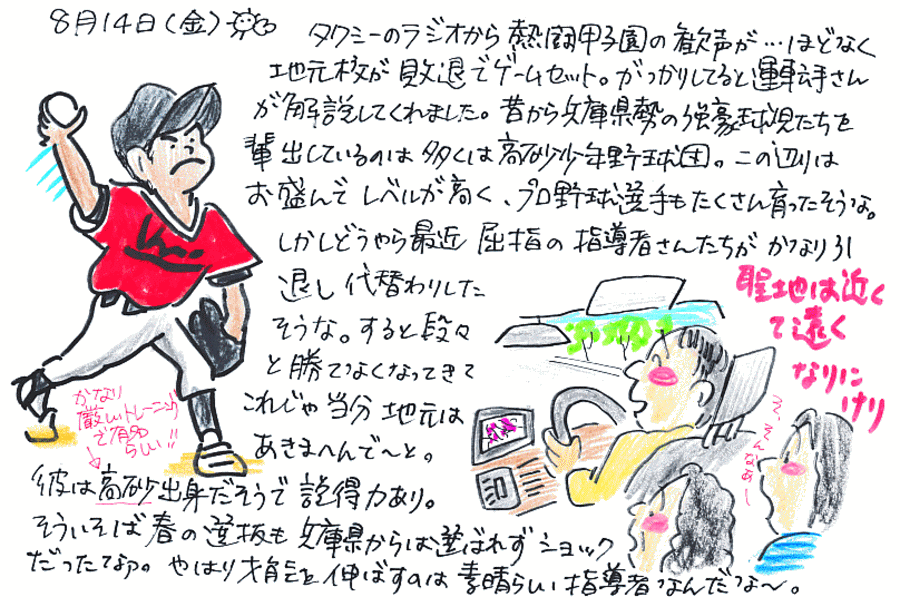 8月14日(金)
タクシーのラジオから熱闘甲子園の歓声が…ほどなく
地元校が敗退でゲームセット。がっかりしてると運転手さん
が解説してくれました。昔から兵庫県勢の強豪球児たちを
輩出しているのは多くは高砂少年野球団。この辺りは
お盛んでレベルが高く、プロ野球選手もたくさん育ったそうな。
しかしどうやら最近屈指の指導者さんたちがかなり引
退し代替わりした
そうな。すると段々
と勝てなくなってきて
これじゃ当分地元は
あきまへんで〜と。
彼は高砂出身だそうで説得力あり。
そういえば春の選抜も兵庫県からは選ばれずショック
だったなァ。やはり才能を伸ばすのは素晴らしい指導者なんだな〜。
かなり
厳しいトレーニング
で有名
らしい!!
聖地は近く
て遠く
なりに
けり
そ、そんなあ〜